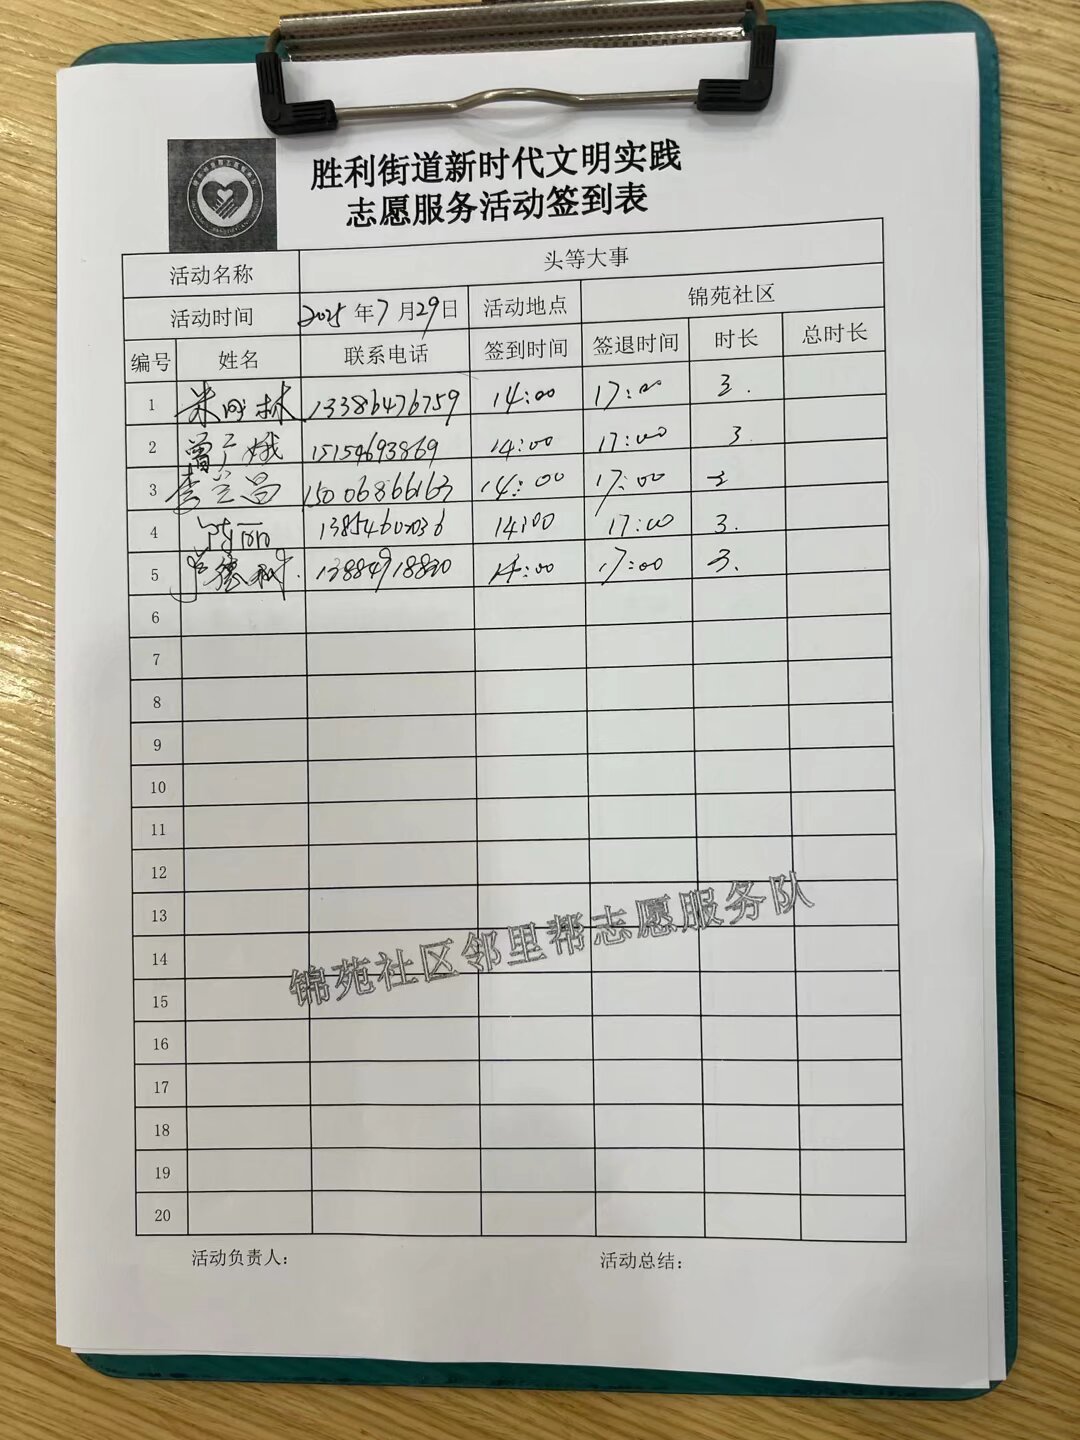 胜利街道新时代文明实践
志愿服务活动签到表
活动名称 头等大事
活动时间 2025年7月29日 活动地点 锦苑社区
编号 姓名 联系电话 签到时间 签退时间 时长 总时长
1 林 13386476759 14:00 17:00 3.
2 曾广娥 15154693869 14:00 17:00 3.
3 李兰昌 15006866163 14:00 17:00 3
4 丽 14:00 17:00 3.
5 德 13884918830 14:00 17:00 3.
6
7
8
9
10
11
12
13
14
15
16
17
18
19
20
锦苑社区邻里帮志愿服务队
活动负责人: 活动总结: